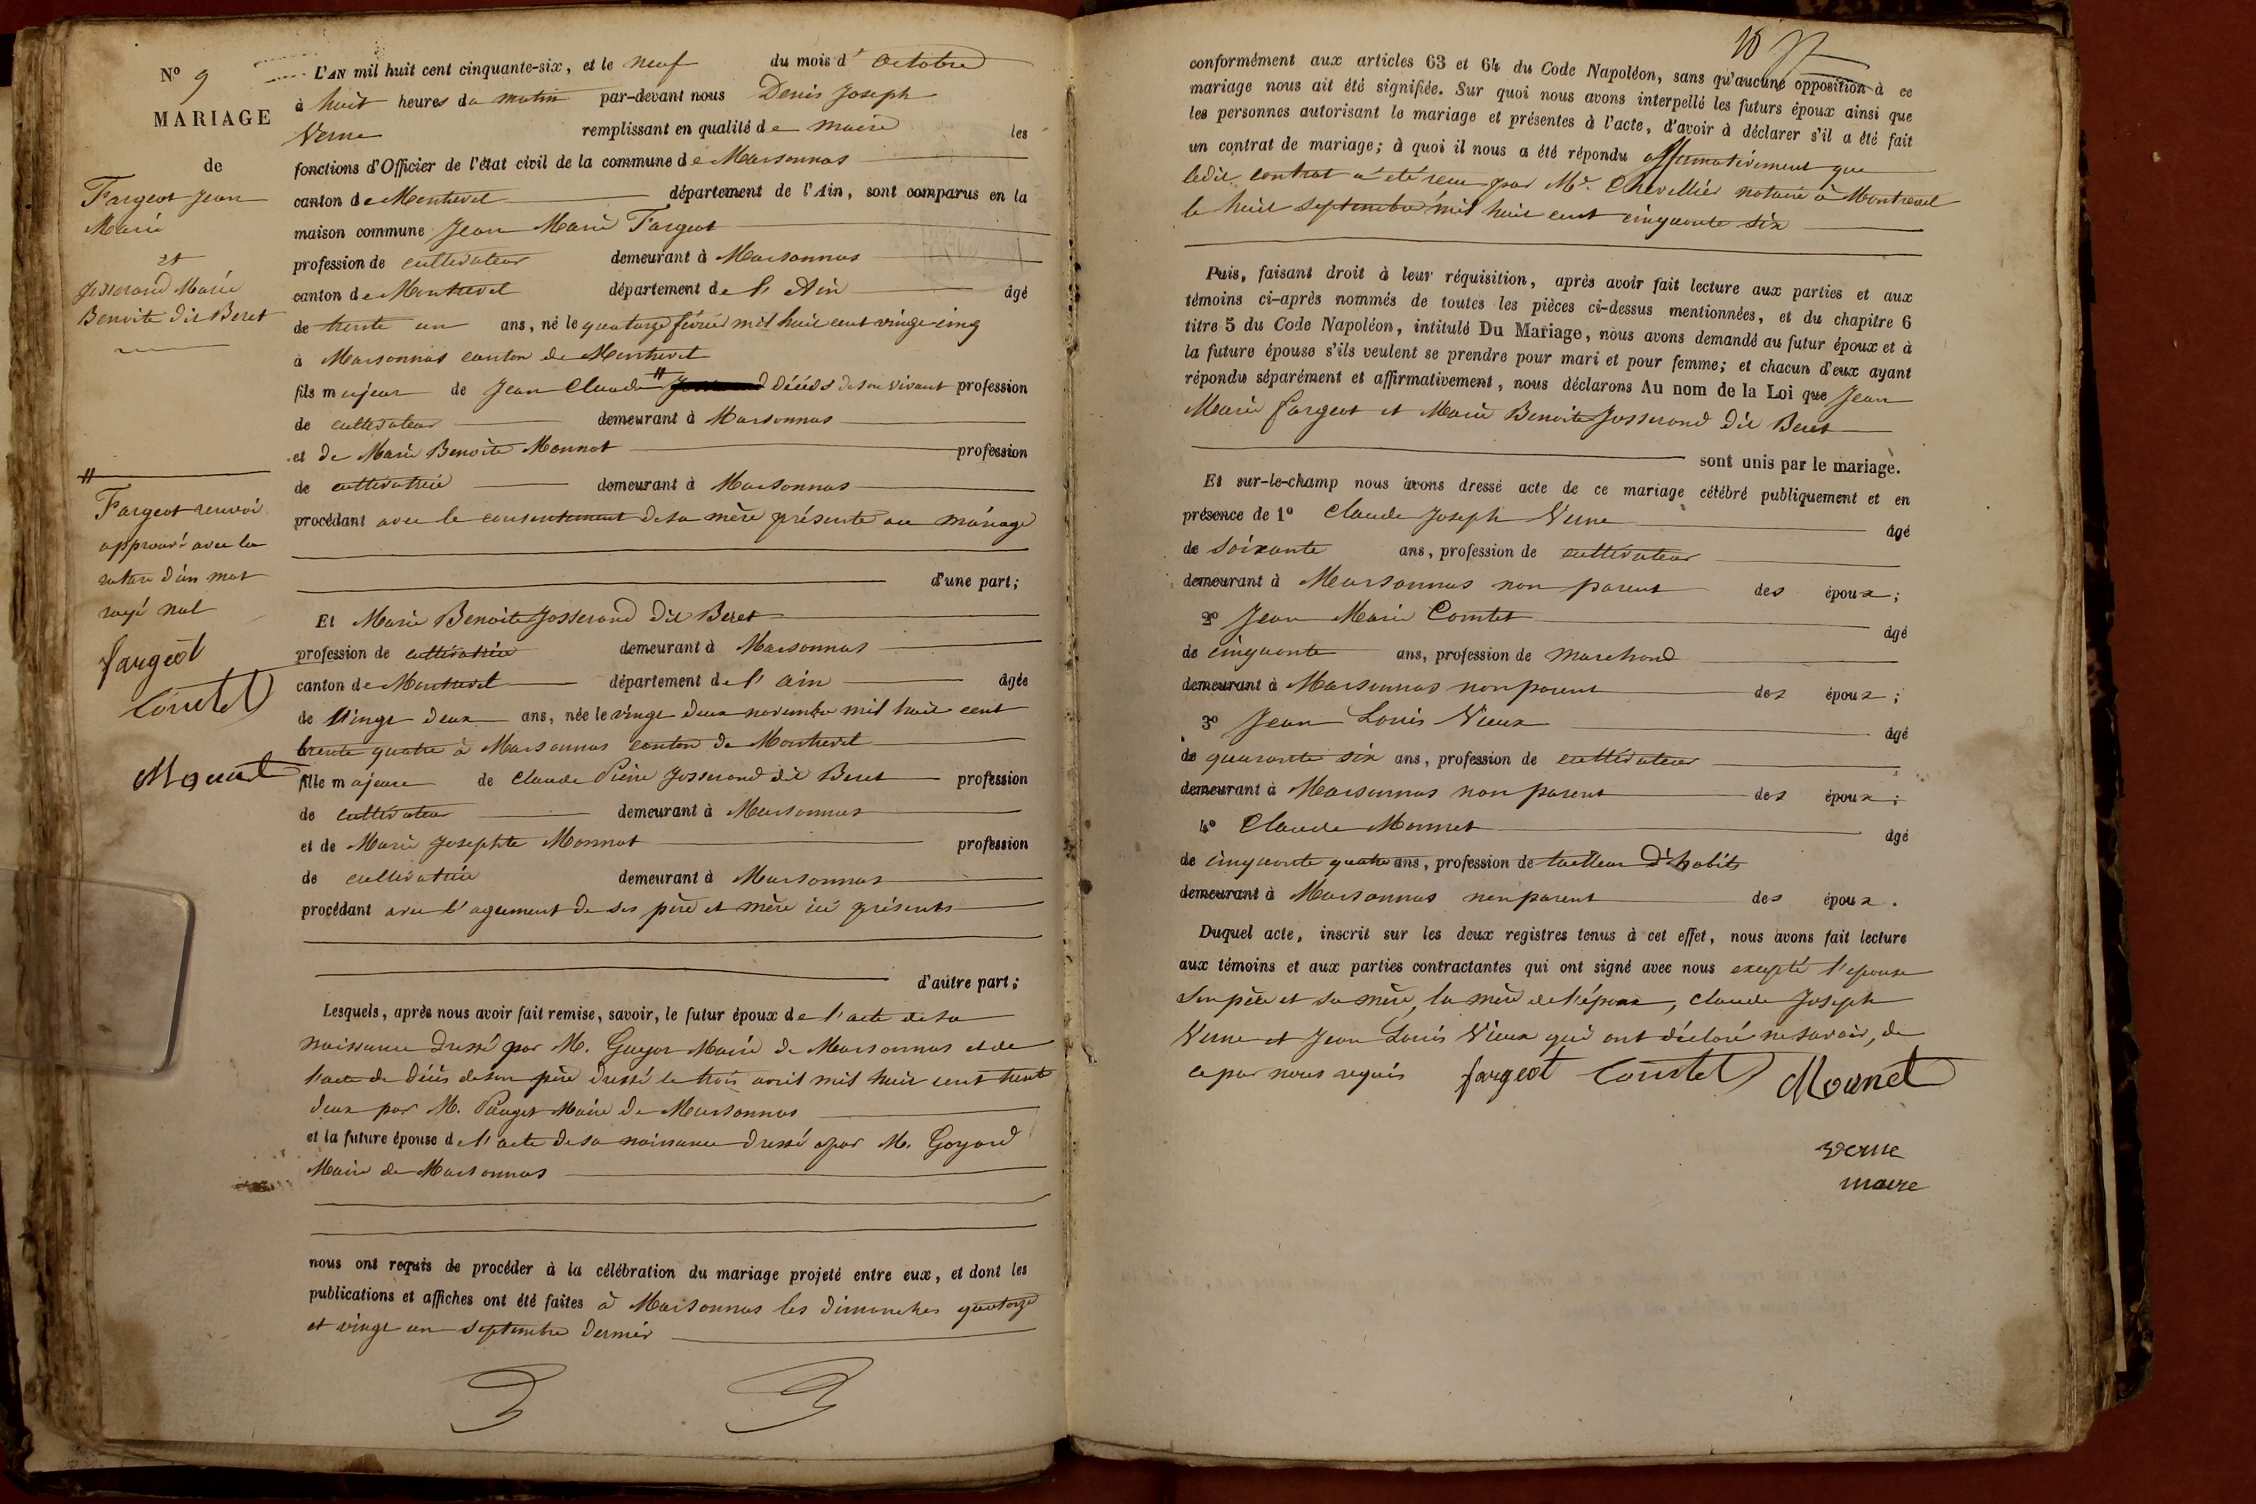 N° 9
MARIAGE
de
Fargeot Jean
Marie
et
Josserand Marie
Benoite dit Beret
H
Fargeot renvoi
approuvé avec la
rature d'un mot
rayé nul
fargeot
Comtet
Monnet
L'AN mil huit cent cinquante-six, et le neuf du mois d'octobre
à huit heures du matin par-devant nous Denis Joseph
Verne remplissant en qualité de maire les
fonctions d'Officier de l'état civil de la commune de Marsonnas
canton de Montrevel département de l'Ain, sont comparus en la
maison commune Jean Marie Fargeot
profession de cultivateur demeurant à Marsonnas
canton de Montrevel département de l'Ain âgé
de trente un ans, né le quatorze février mil huit cent vingt-cinq
à Marsonnas canton de Montrevel
fils majeur de Jean Claude H décédé de son vivant profession
de cultivateur demeurant à Marsonnas
et de Marie Benoite Monnot profession
de cultivatrice demeurant à Marsonnas
procédant avec le consentement de sa mère présente au mariage
d'une part;
Et Marie Benoite Josserand dit Beret
profession de cultivatrice demeurant à Marsonnas
canton de Montrevel département de l'ain âgée
de vingt deux ans, née le vingt deux novembre mil huit cent
trente quatre à Marsonnas canton de Montrevel
fille majeure de Claude Pierre Josserand dit Beret profession
de cultivateur demeurant à Marsonnas
et de Marie Josephte Monnot profession
de cultivatrice demeurant à Marsonnas
procédant avec l'agrément de ses père et mère ici présents
d'autre part;
Lesquels, après nous avoir fait remise, savoir, le futur époux de l'acte de sa
naissance dressé par M. Maire de Marsonnas et de
l'acte de décès de son père dressé le trois avril mil huit cent trente
deux par M. Pauget Maire de Marsonnas
et la future épouse de l'acte de sa naissance dressé par M. Goyard
Maire de Marsonnas
nous ont requis de procéder à la célébration du mariage projeté entre eux, et dont les
publications et affiches ont été faites à Marsonnas les dimanches quatorze
et vingt un septembre dernier
10
conformément aux articles 63 et 64 du Code Napoléon, sans qu'aucune opposition à ce
mariage nous ait été signifiée. Sur quoi nous avons interpellé les futurs époux ainsi que
les personnes autorisant le mariage et présentes à l'acte, d'avoir à déclarer s'il a été fait
un contrat de mariage; à quoi il nous a été répondu affirmativement que
ledit contrat a été reçu par Me. Chevellier notaire à Montrevel
le huit septembre mil huit cent cinquante six
Puis, faisant droit à leur réquisition, après avoir fait lecture aux parties et aux
témoins ci-après nommés de toutes les pièces ci-dessus mentionnées, et du chapitre 6
titre 5 du Code Napoléon, intitulé Du Mariage, nous avons demandé au futur époux et à
la future épouse s'ils veulent se prendre pour mari et pour femme; et chacun d'eux ayant
répondu séparément et affirmativement, nous déclarons Au nom de la Loi que Jean
Marie fargeot et Marie Benoite Josserand dit Beret
sont unis par le mariage.
Et sur-le-champ nous avons dressé acte de ce mariage célébré publiquement et en
présence de 1° Claude Joseph Verne âgé
de soixante ans, profession de cultivateur
demeurant à Marsonnas non parent des époux;
2° Jean Marie Comtet âgé
de cinquante ans, profession de marchand
demeurant à Marsonnas non parent des époux;
3° Jean Louis Vieux âgé
de quarante six ans, profession de cultivateur
demeurant à Marsonnas non parent des époux;
4° Claude Monnet âgé
de cinquante quatre ans, profession de tailleur d'habits
demeurant à Marsonnas non parent des époux.
Duquel acte, inscrit sur les deux registres tenus à cet effet, nous avons fait lecture
aux témoins et aux parties contractantes qui ont signé avec nous excepté l'epouse
son père et sa mère, la mère de l'époux, Claude Joseph
Verne et Jean Louis Vieux qui ont déclaré ne savoir, de
ce par nous requis fargeot Comtet Monnet
verne
maire